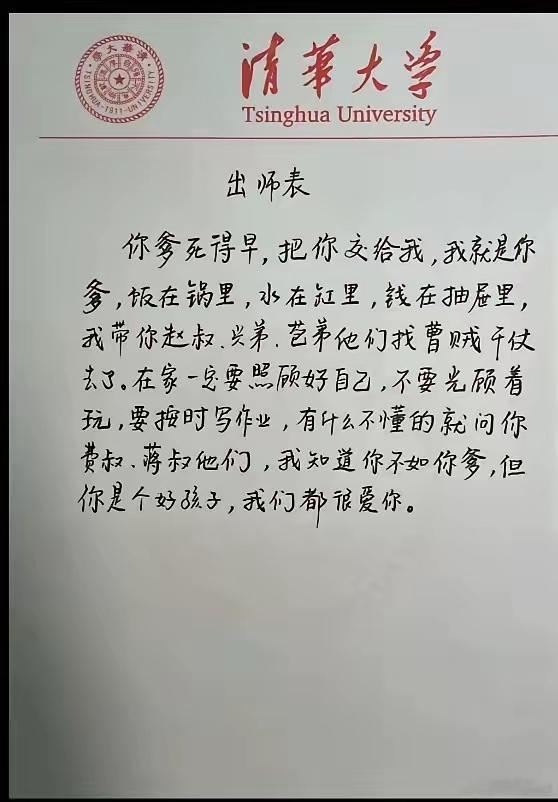 清華大学
Tsinghua University
清華大學
TSINGHUA-1911-UNIVERSITY
出师表
你爹死得早，把你交给我，我就是你
爹，饭在锅里，水在缸里，钱在抽屉里，
我带你赵叔、兴弟、苞弟他们找曹贼干仗
去了。在家一定要照顾好自己，不要光顾着
玩，要按时写作业，有什么不懂的就问你
费叔、蒋叔他们，我知道你不如你爹，但
你是个好孩子，我们都很爱你。